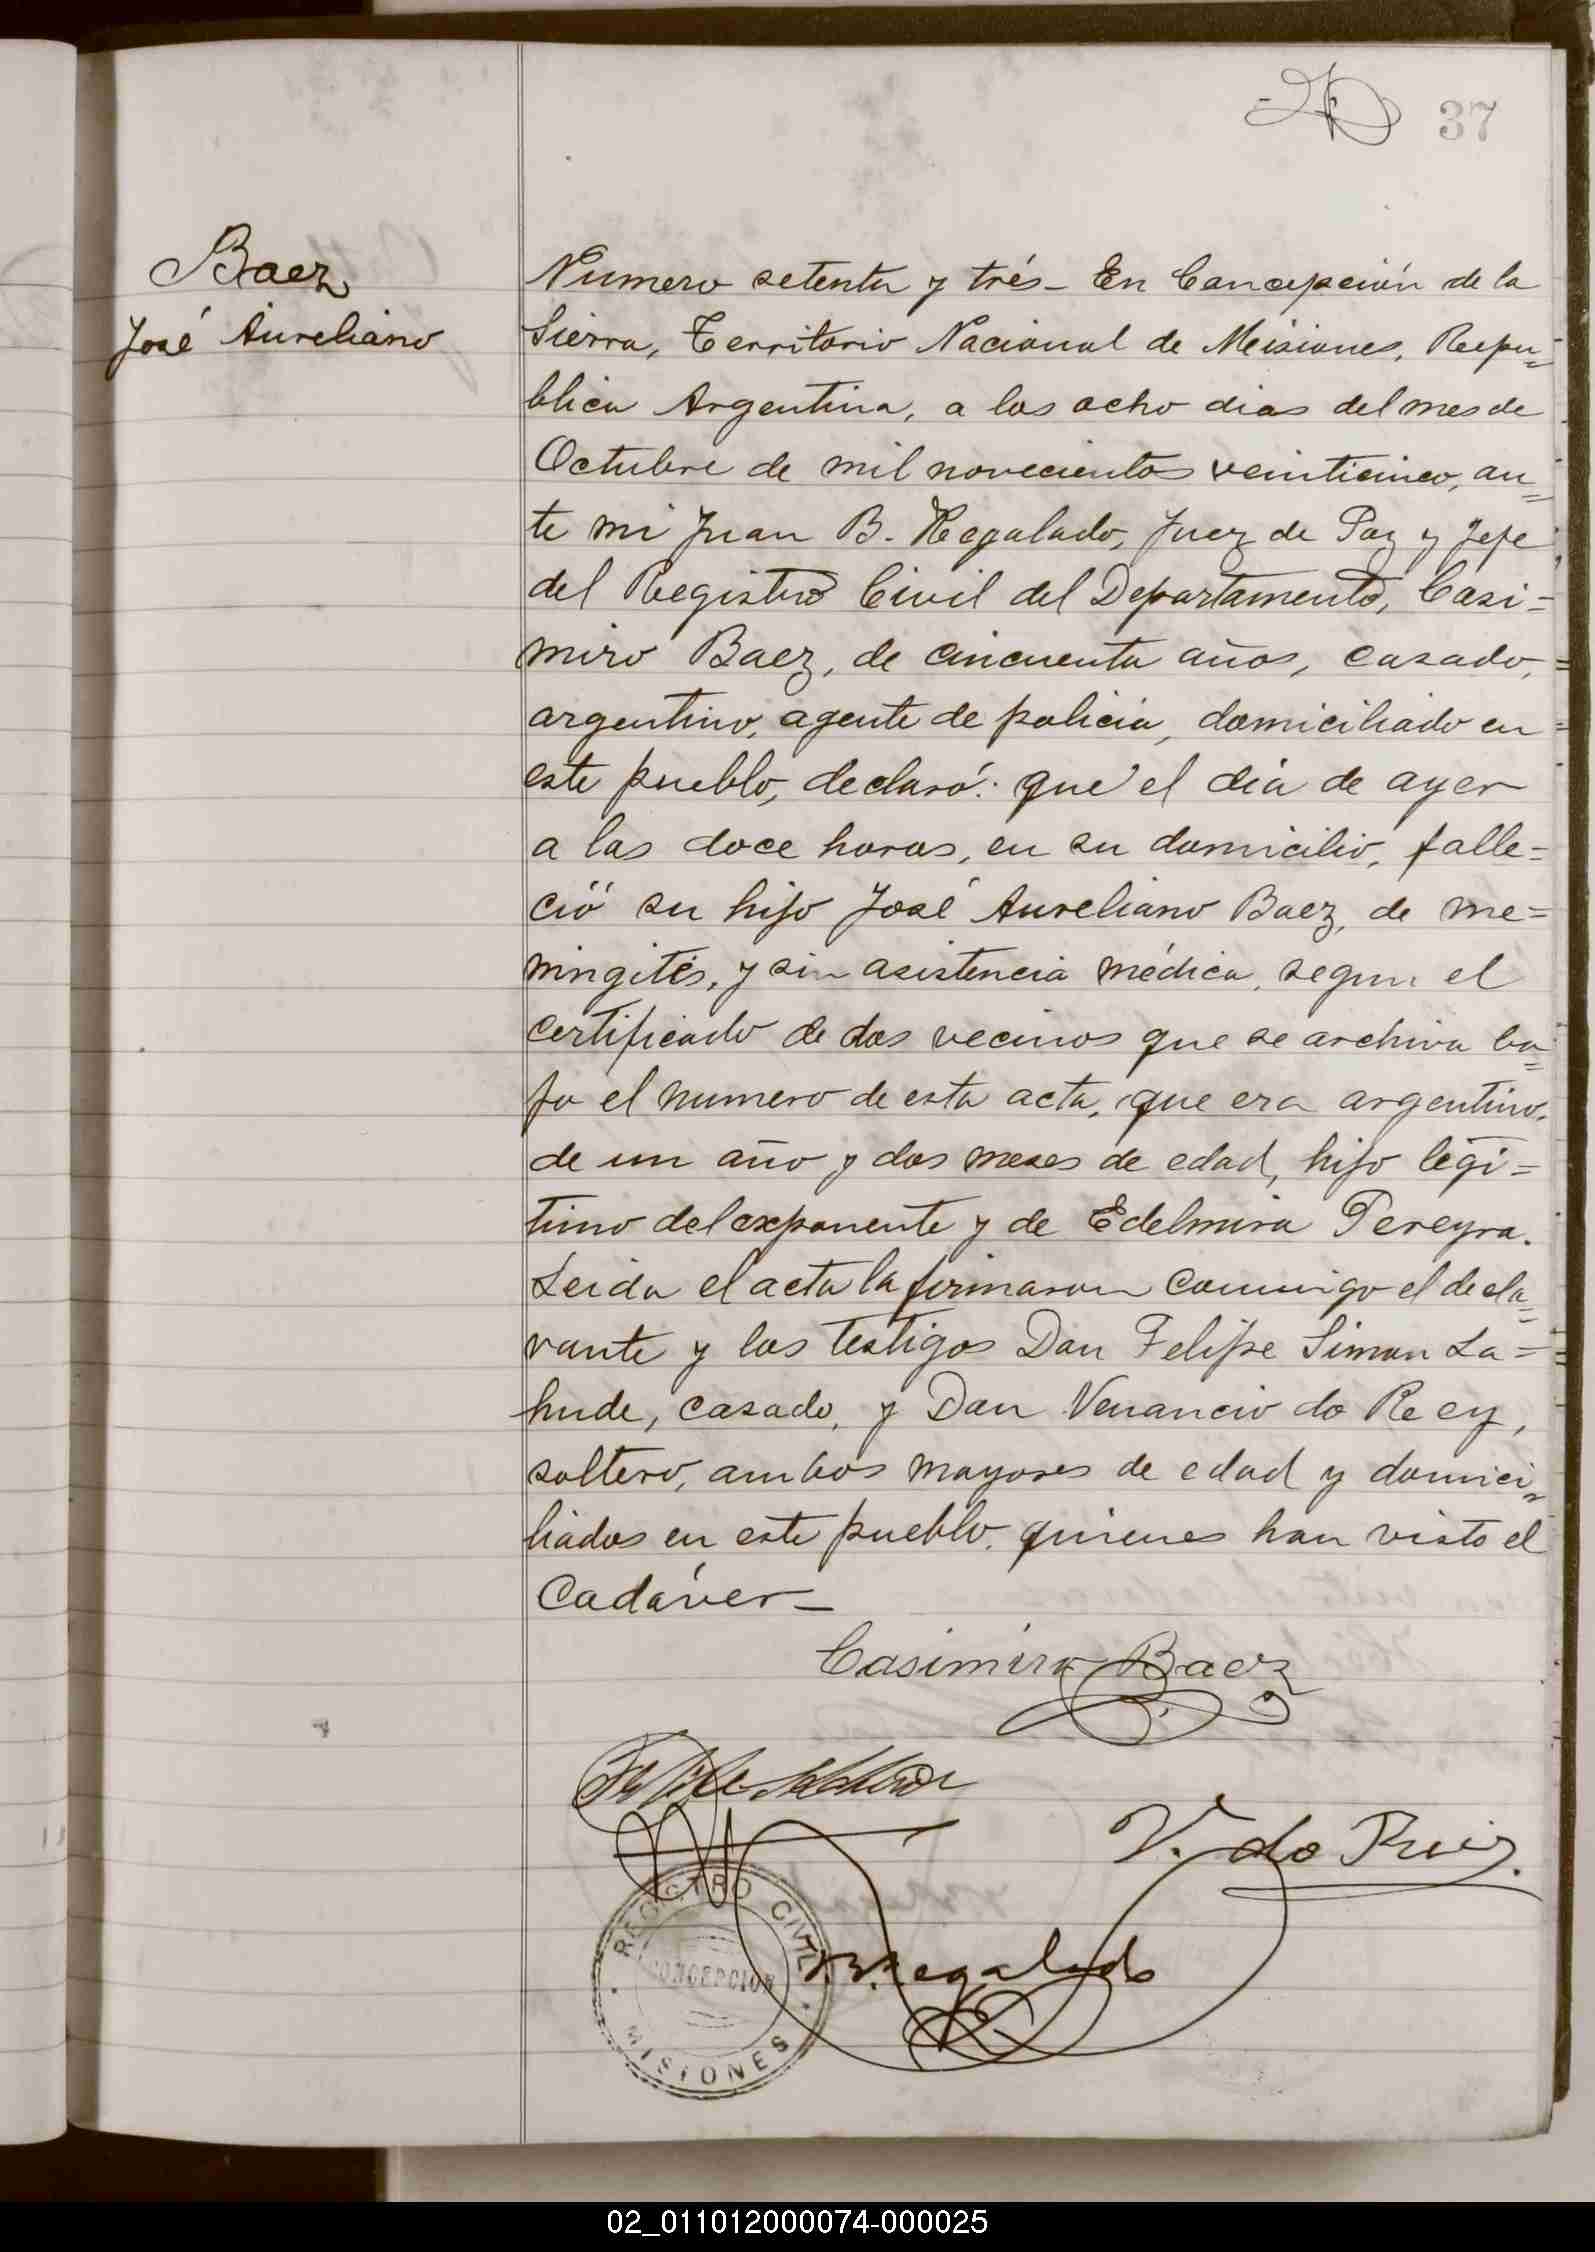 37
Baez
José Aureliano
Numero setenta y trés_ En Concepción de la
Sierra, Territorio Nacional de Misiones, Repu=
blica Argentina, a los ocho dias del mes de
Octubre de mil novecientos veinticinco, an=
te mi Juan B. Regalado, Juez de Paz y Jefe
del Registro Civil del Departamento, Casi=
miro Baez, de cincuenta años, casado,
argentino, agente de policia, domiciliado en
este pueblo, declaró: que el dia de ayer
a las doce horas, en su domicilio, falle=
ció su hijo José Aureliano Baez, de me=
ningites, y sin asistencia médica, segun el
certificado de dos vecinos que se archiva ba=
jo el numero de esta acta, que era argentino,
de un año y dos meses de edad, hijo legi=
timo del exponente y de Edelmira Pereyra.
Leida el acta la firmaron conmigo el decla=
rante y los testigos Don Felipe Simon La=
hude, casado, y Don Venancio do Reey,
soltero, ambos mayores de edad y domici=
liados en este pueblo, quienes han visto el
Cadáver_
Casimiro Baez
Felipe
V. do Ruiz.
B. Regalado
REGISTRO CIVIL
CONCEPCION
MISIONES
02_011012000074-000025